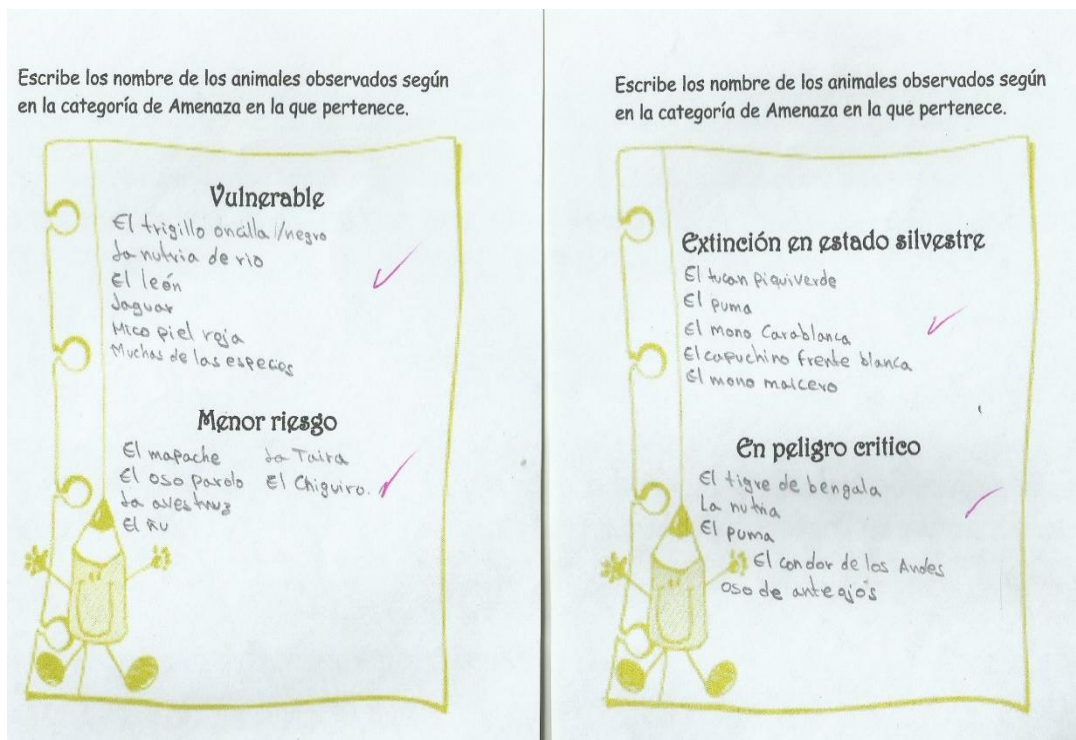 Escribe los nombre de los animales observados según
en la categoría de Amenaza en la que pertenece.
Vulnerable
El trigillo oncilla //negro
La nutria de rio
El león
Jaguar
Mico piel roja
Muchas de las especies
Menor riesgo
El mapache La Taira
El oso pardo El Chiguiro.
La avestruz
El ñu
Escribe los nombre de los animales observados según
en la categoría de Amenaza en la que pertenece.
Extinción en estado silvestre
El tucan piquiverde
El puma
El mono Carablanca
El capuchino frente blanca
El mono maicero
En peligro critico
El tigre de bengala
La nutria
El puma
El condor de los Andes
oso de anteojos